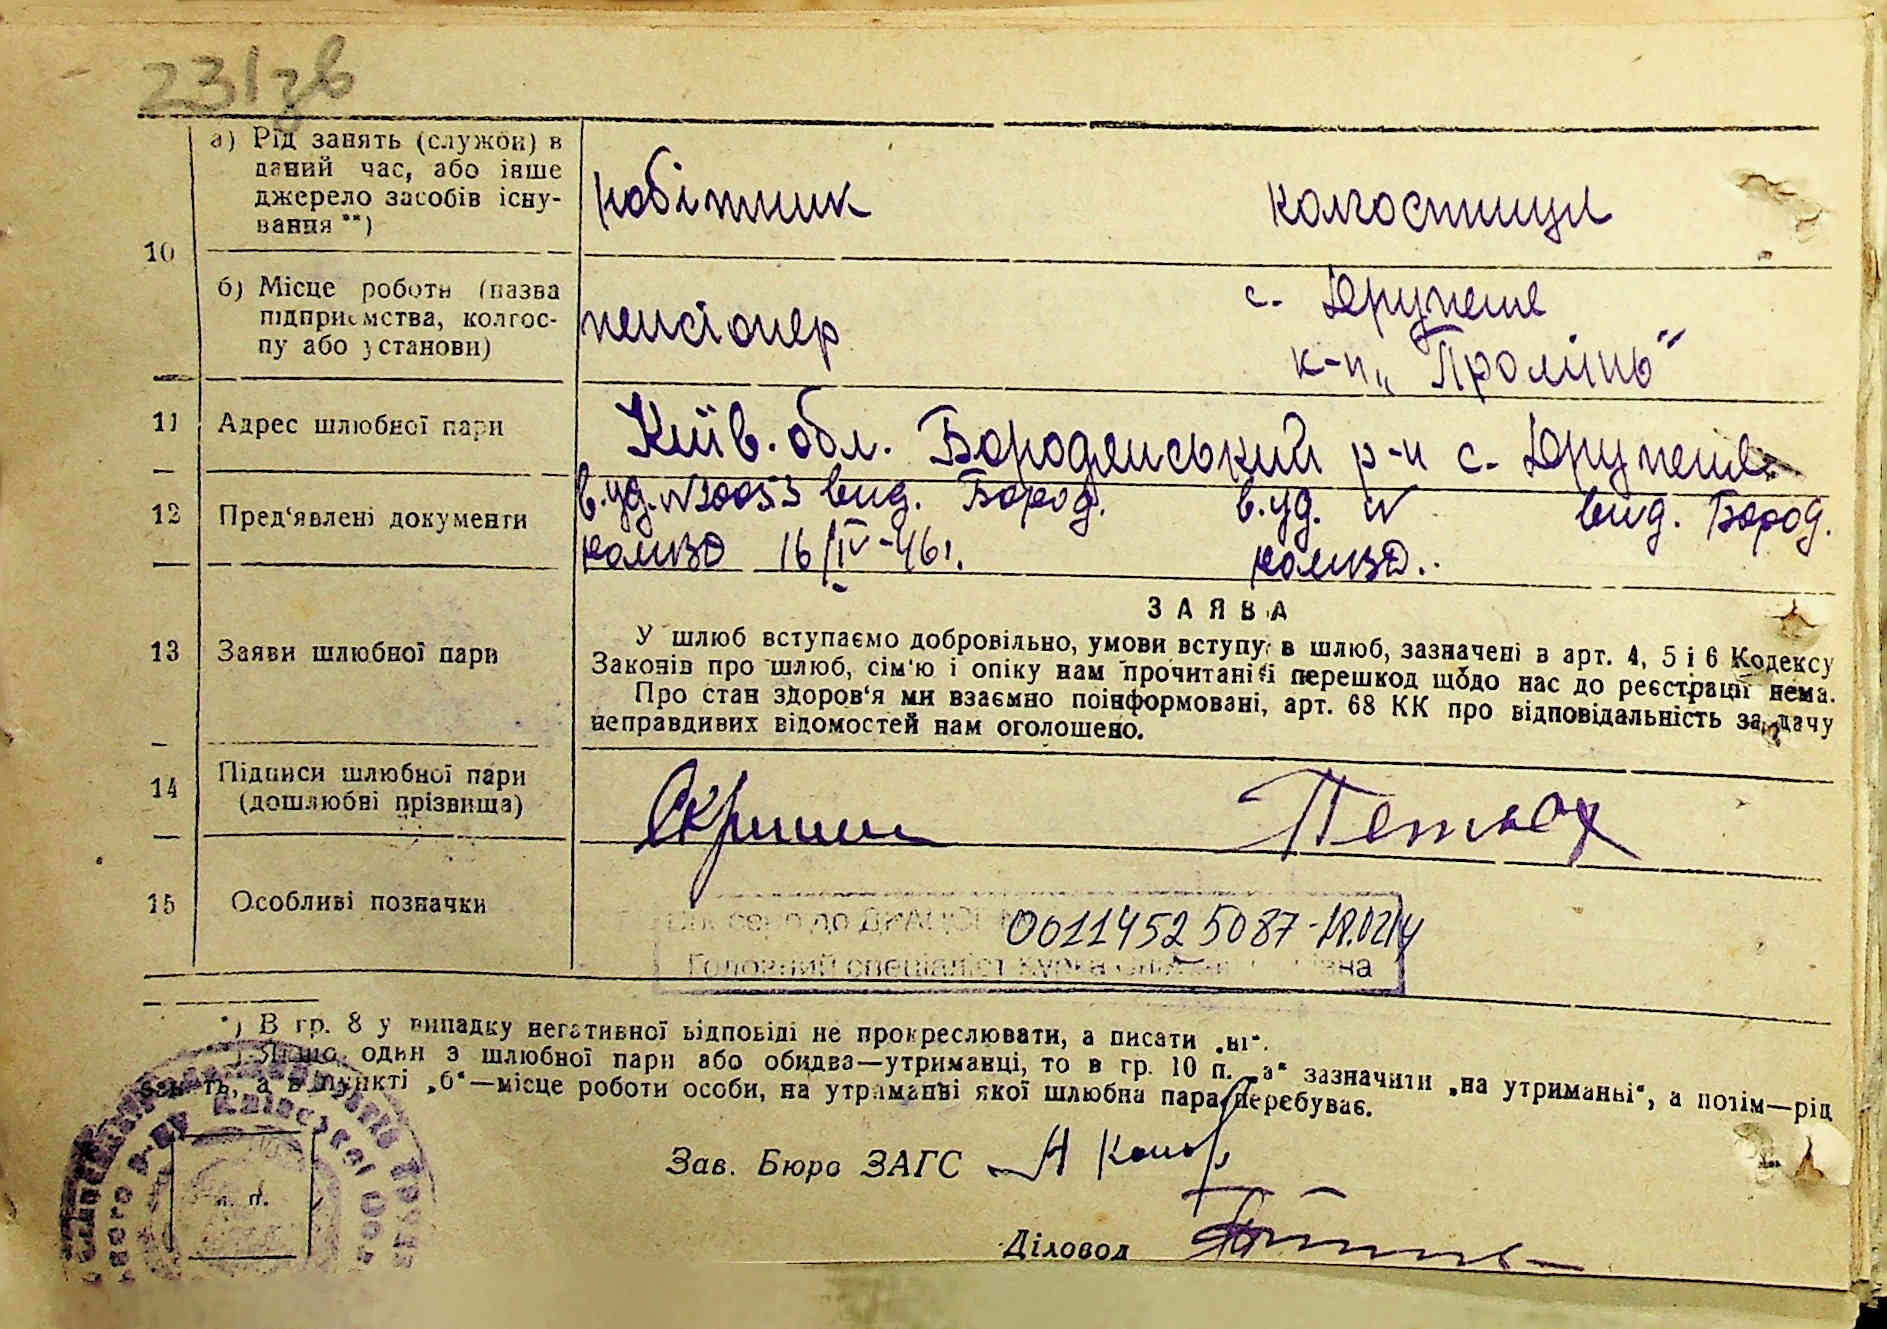 231зв
10
а) Рід занять (служби) в даний час, або інше джерело засобів існування **)
робітник
колгоспниця
б) Місце роботи (назва підприємства, колгоспу або установи)
пенсіонер
с. Дружне
к-п „Промінь"
11 Адрес шлюбної пари
Київ. обл. Бородянський р-н с. Дружне
12 Пред'явлені документи
в.уд. №20053 вид. Бород.
в.уд. № вид. Бород.
16/IV-46г.
13 Заяви шлюбної пари
ЗАЯВА
У шлюб вступаємо добровільно, умови вступу в шлюб, зазначені в арт. 4, 5 і 6 Кодексу
Законів про шлюб, сім'ю і опіку нам прочитані і перешкод щодо нас до реєстрації нема.
Про стан здоров'я ми взаємно поінформовані, арт. 68 КК про відповідальність за дачу
неправдивих відомостей нам оголошено.
14 Підписи шлюбної пари
(дошлюбні прізвища)
Петьох
15 Особливі позначки
до ДРАЦС
00114525087-
Головний спеціаліст
*) В гр. 8 у випадку негативної відповіді не прокреслювати, а писати „ні".
Якщо один з шлюбної пари або обидва—утриманці, то в гр. 10 п. „а" зазначити „на утриманні", а потім—рід
занять, а в пункті „б"—місце роботи особи, на утриманні якої шлюбна пара перебуває.
Київської Обл
м. п.
Зав. Бюро ЗАГС
Діловод